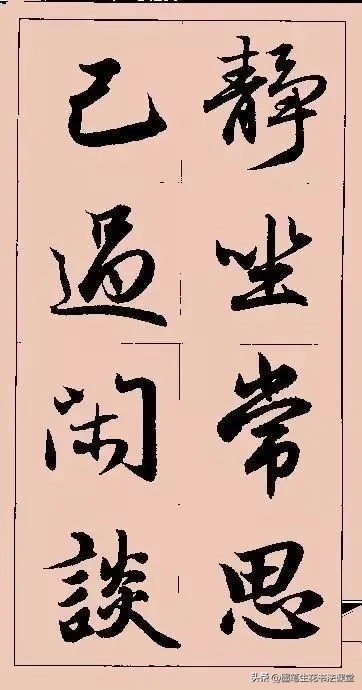 靜坐常思
己過闲談
头条 @墨笔生花书法课堂